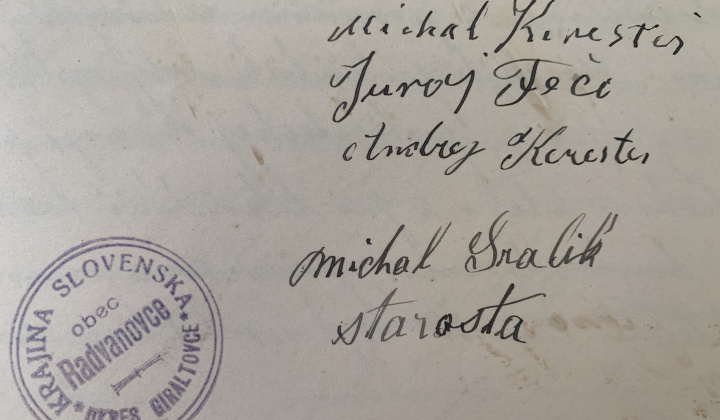 Michal Kerestes
Juroj Fečo
Andrej Kerestes
michal Gralik
starosta
KRAJINA SLOVENSKA
obec
Radvanovce
OKRES GIRALTOVCE